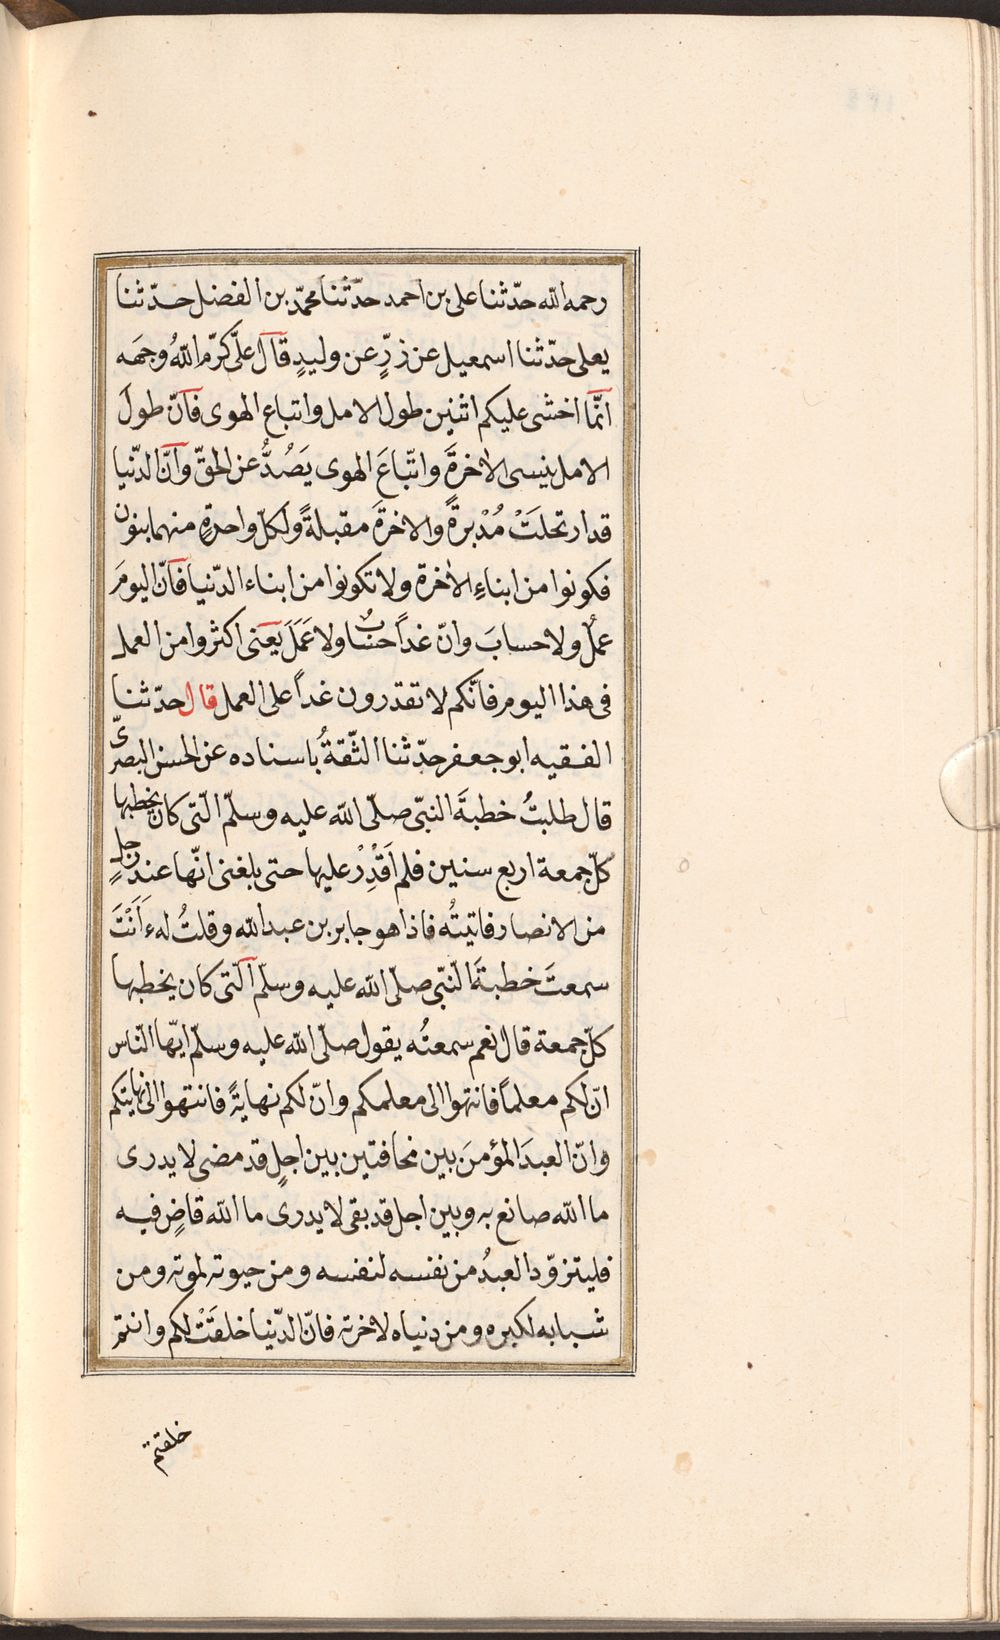 رحمه الله حدّثنا على بن احمد حدّثنا محمّد بن الفضل حدّثنا
يعلى حدّثنا اسمعيل عن زرٍّ عن وليدٍ قال علىّ كرّم اللهُ وجهَه
انّما اخشى عليكم اثنين طول الامل واتباع الهوى فانّ طولَ
الامل ينسى الاٰخرةَ واتّباعَ الهوى يَصُدُّ عن الحقّ وانّ الدّنيا
قد ارتحلَتْ مُدْبرةً والاخرةَ مقبلةً ولكلّ واحدةٍ منهما بنون
فكونوا من ابناءِ الاٰخرة ولا تكونوا من ابناء الدّنيا فانّ اليومَ
عملٌ ولا حسابَ وانّ غداً حسابٌ ولا عَمَلَ يعنى اكثروا من العمل
فى هذا اليوم فانّكم لا تقدرون غداً على العمل قال حدّثنا
الفقيه ابو جعفر حدّثنا الثّقةُ باسناده عن الحسن البصرىّ
قال طلبتُ خطبةَ النبّى صلّى الله عليه وسلّم الّتى كان يخطبها
كلّ جمعة اربع سنين فلم اَقْدِرْ عليها حتى بلغنى انّها عند رجلٍ
من الانصار فاتيتُه فاذا هو جابر بن عبد الله وقلتُ له ءاَنْتَ
سمعتَ خطبةَ النّبّى صلّى الله عليه وسلّم الّتى كان يخطبها
كلّ جمعة قال نعم سمعتُه يقول صلّى الله عليه وسلّم ايّها النّاس
انّ لكم معلماً فانتهوا الى معلمكم وانّ لكم نهايةً فانتهوا الى نهايتكم
وانّ العبدَ المؤمنَ بين مخافتين بين اجلٍ قد مضى لا يدرى
ما الله صانع به وبين اجل قد بقى لا يدرى ما الله قاضٍ فيه
فليتزوّد العبدُ من نفسه لنفسه ومن حيوته لموته ومن
شبابه لكبره ومن دنياه لاخرته فانّ الدّنيا خلقَتْ لكم وانتم
خلقتم